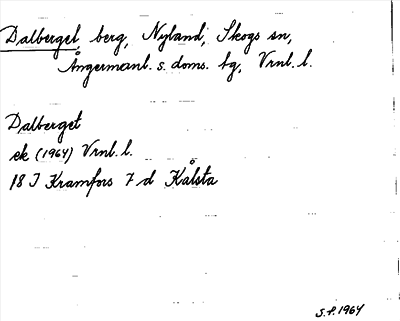 Dalberget, berg, Nyland, Skogs sn,
Ångermanl. s. doms. bg, Vrnl. l.
Dalberget
ek (1964) Vrnl. l.
18 I Kramfors 7 d Kålsta
S.P. 1964